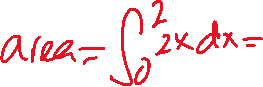 area = ∫₀² 2x dx =